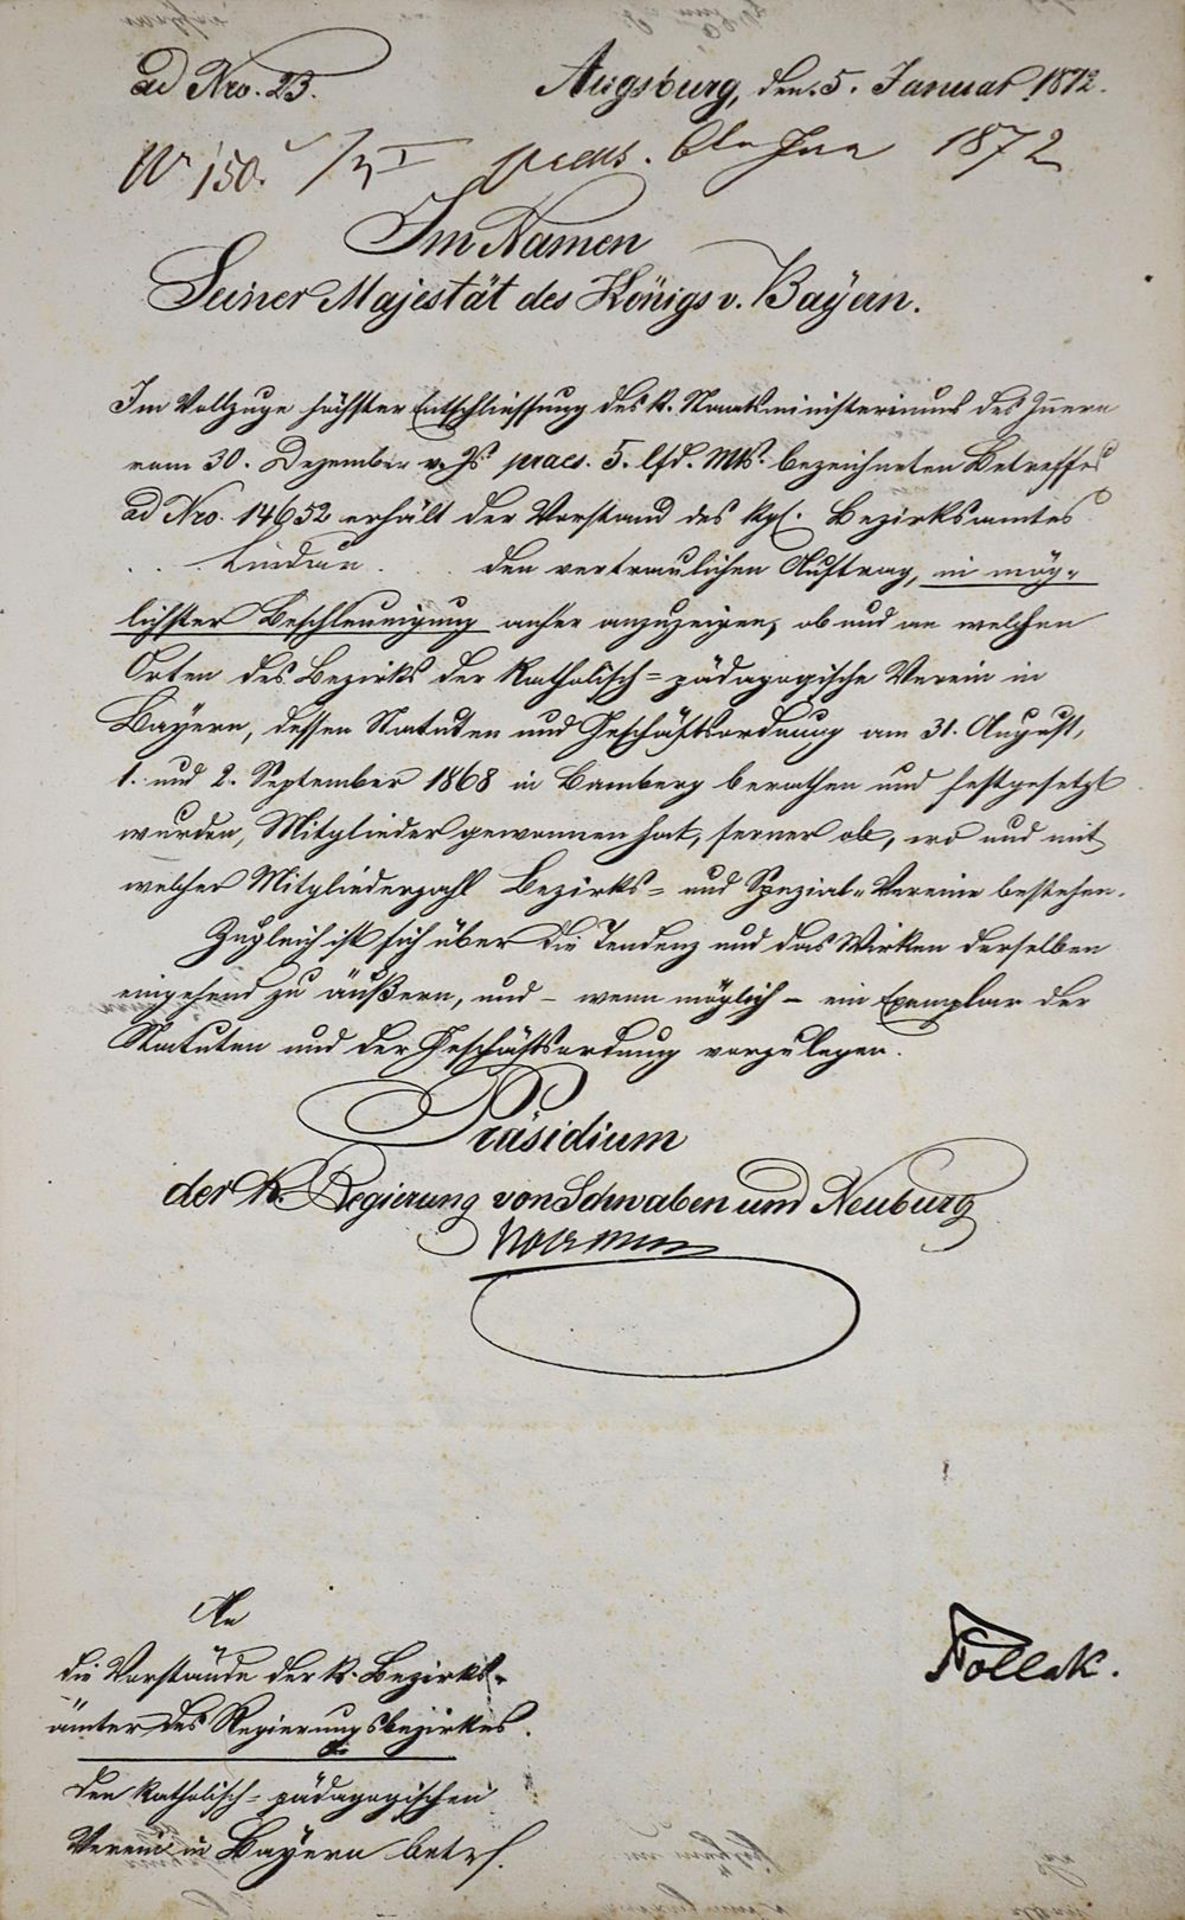 ad Nro. 23.
Augsburg, den 5. Januar 1872.
Nr 150. praes. 6ten Jan 1872
Im Namen
Seiner Majestät des Königs v. Bayern.
Im Vollzuge höchster Entschliessung des k. Staatsministeriums des Innern
vom 30. Dezember v. Js. praes. 5. lfd. Mts. bezeichneten Betreffes
ad Nro. 14652 erhält der Vorstand des kgl. Bezirksamtes
. . . Lindau . . . den vertraulichen Auftrag, in mög-
lichster Beschleunigung anher anzuzeigen, ob und an welchen
Orten des Bezirks der katholisch-pädagogische Verein in
Bayern, dessen Statuten und Geschäftsordnung am 31. August,
1. und 2. September 1868 in Bamberg berathen und festgesetzt
wurden, Mitglieder gewonnen hat, ferner ob, wo und mit
welcher Mitgliederzahl Bezirks- und Spezial-Vereine bestehen.
Zugleich ist sich über die Tendenz und das Wirken derselben
eingehend zu äußern, und - wenn möglich - ein Exemplar der
Statuten und der Geschäftsordnung vorzulegen.
Präsidium
der K. Regierung von Schwaben und Neuburg
An
die Vorstände der k. Bezirks-
ämter des Regierungsbezirkes.
Pollak.
den katholisch-pädagogischen
Verein in Bayern betrf.